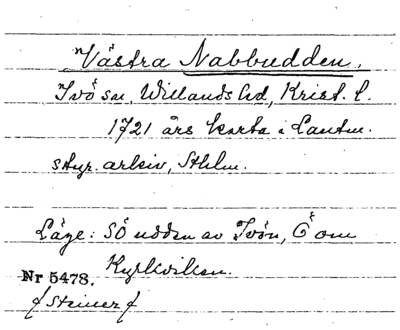 Västra Nabbudden,
Ivö sn, Willands hd, Krist. l.
1721 års karta i Lantm.
styr. arkiv, Sthlm.
Läge: SÖ udden av Ivön, Ö om
Kyrkviken.
Nr 5478.
/ Steiner /